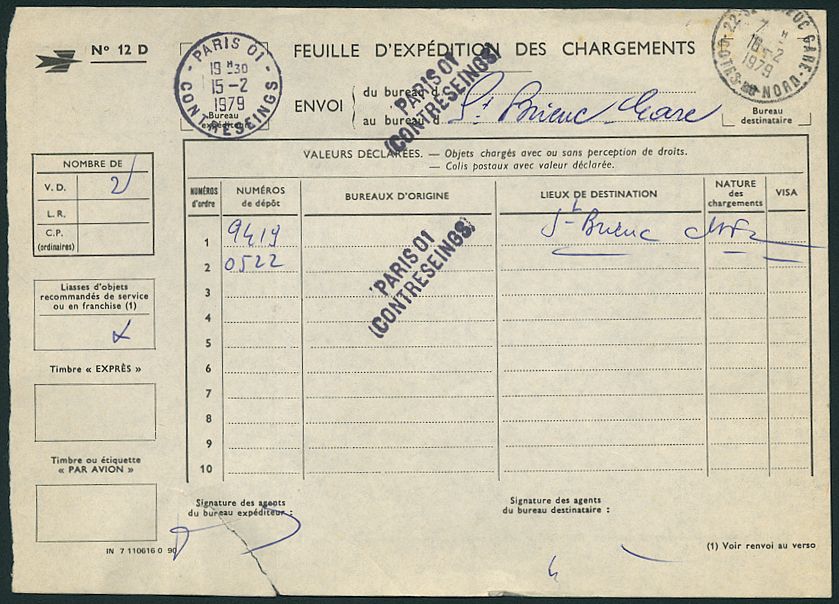 N° 12 D
PARIS 01
19 H 30
15-2
1979
CONTRESEINGS
Bureau
expéditeur
FEUILLE D'EXPÉDITION DES CHARGEMENTS
ENVOI
du bureau d
au bureau d
St Brieuc Gare
PARIS 01
(CONTRESEINGS)
GARE
7 H
16-2
1979
COTES-DU-NORD
Bureau
destinataire
NOMBRE DE
V. D. 2
L. R.
C. P.
(ordinaires)
Liasses d'objets
recommandés de service
ou en franchise (1)
Timbre « EXPRÈS »
Timbre ou étiquette
« PAR AVION »
IN 7 110616 0 90
VALEURS DÉCLARÉES. — Objets chargés avec ou sans perception de droits.
— Colis postaux avec valeur déclarée.
NUMÉROS d'ordre
NUMÉROS de dépôt
BUREAUX D'ORIGINE
LIEUX DE DESTINATION
NATURE des chargements
VISA
1 9419 St Brieuc
2 0522
PARIS 01
(CONTRESEINGS)
3
4
5
6
7
8
9
10
Signature des agents
du bureau expéditeur :
Signature des agents
du bureau destinataire :
(1) Voir renvoi au verso